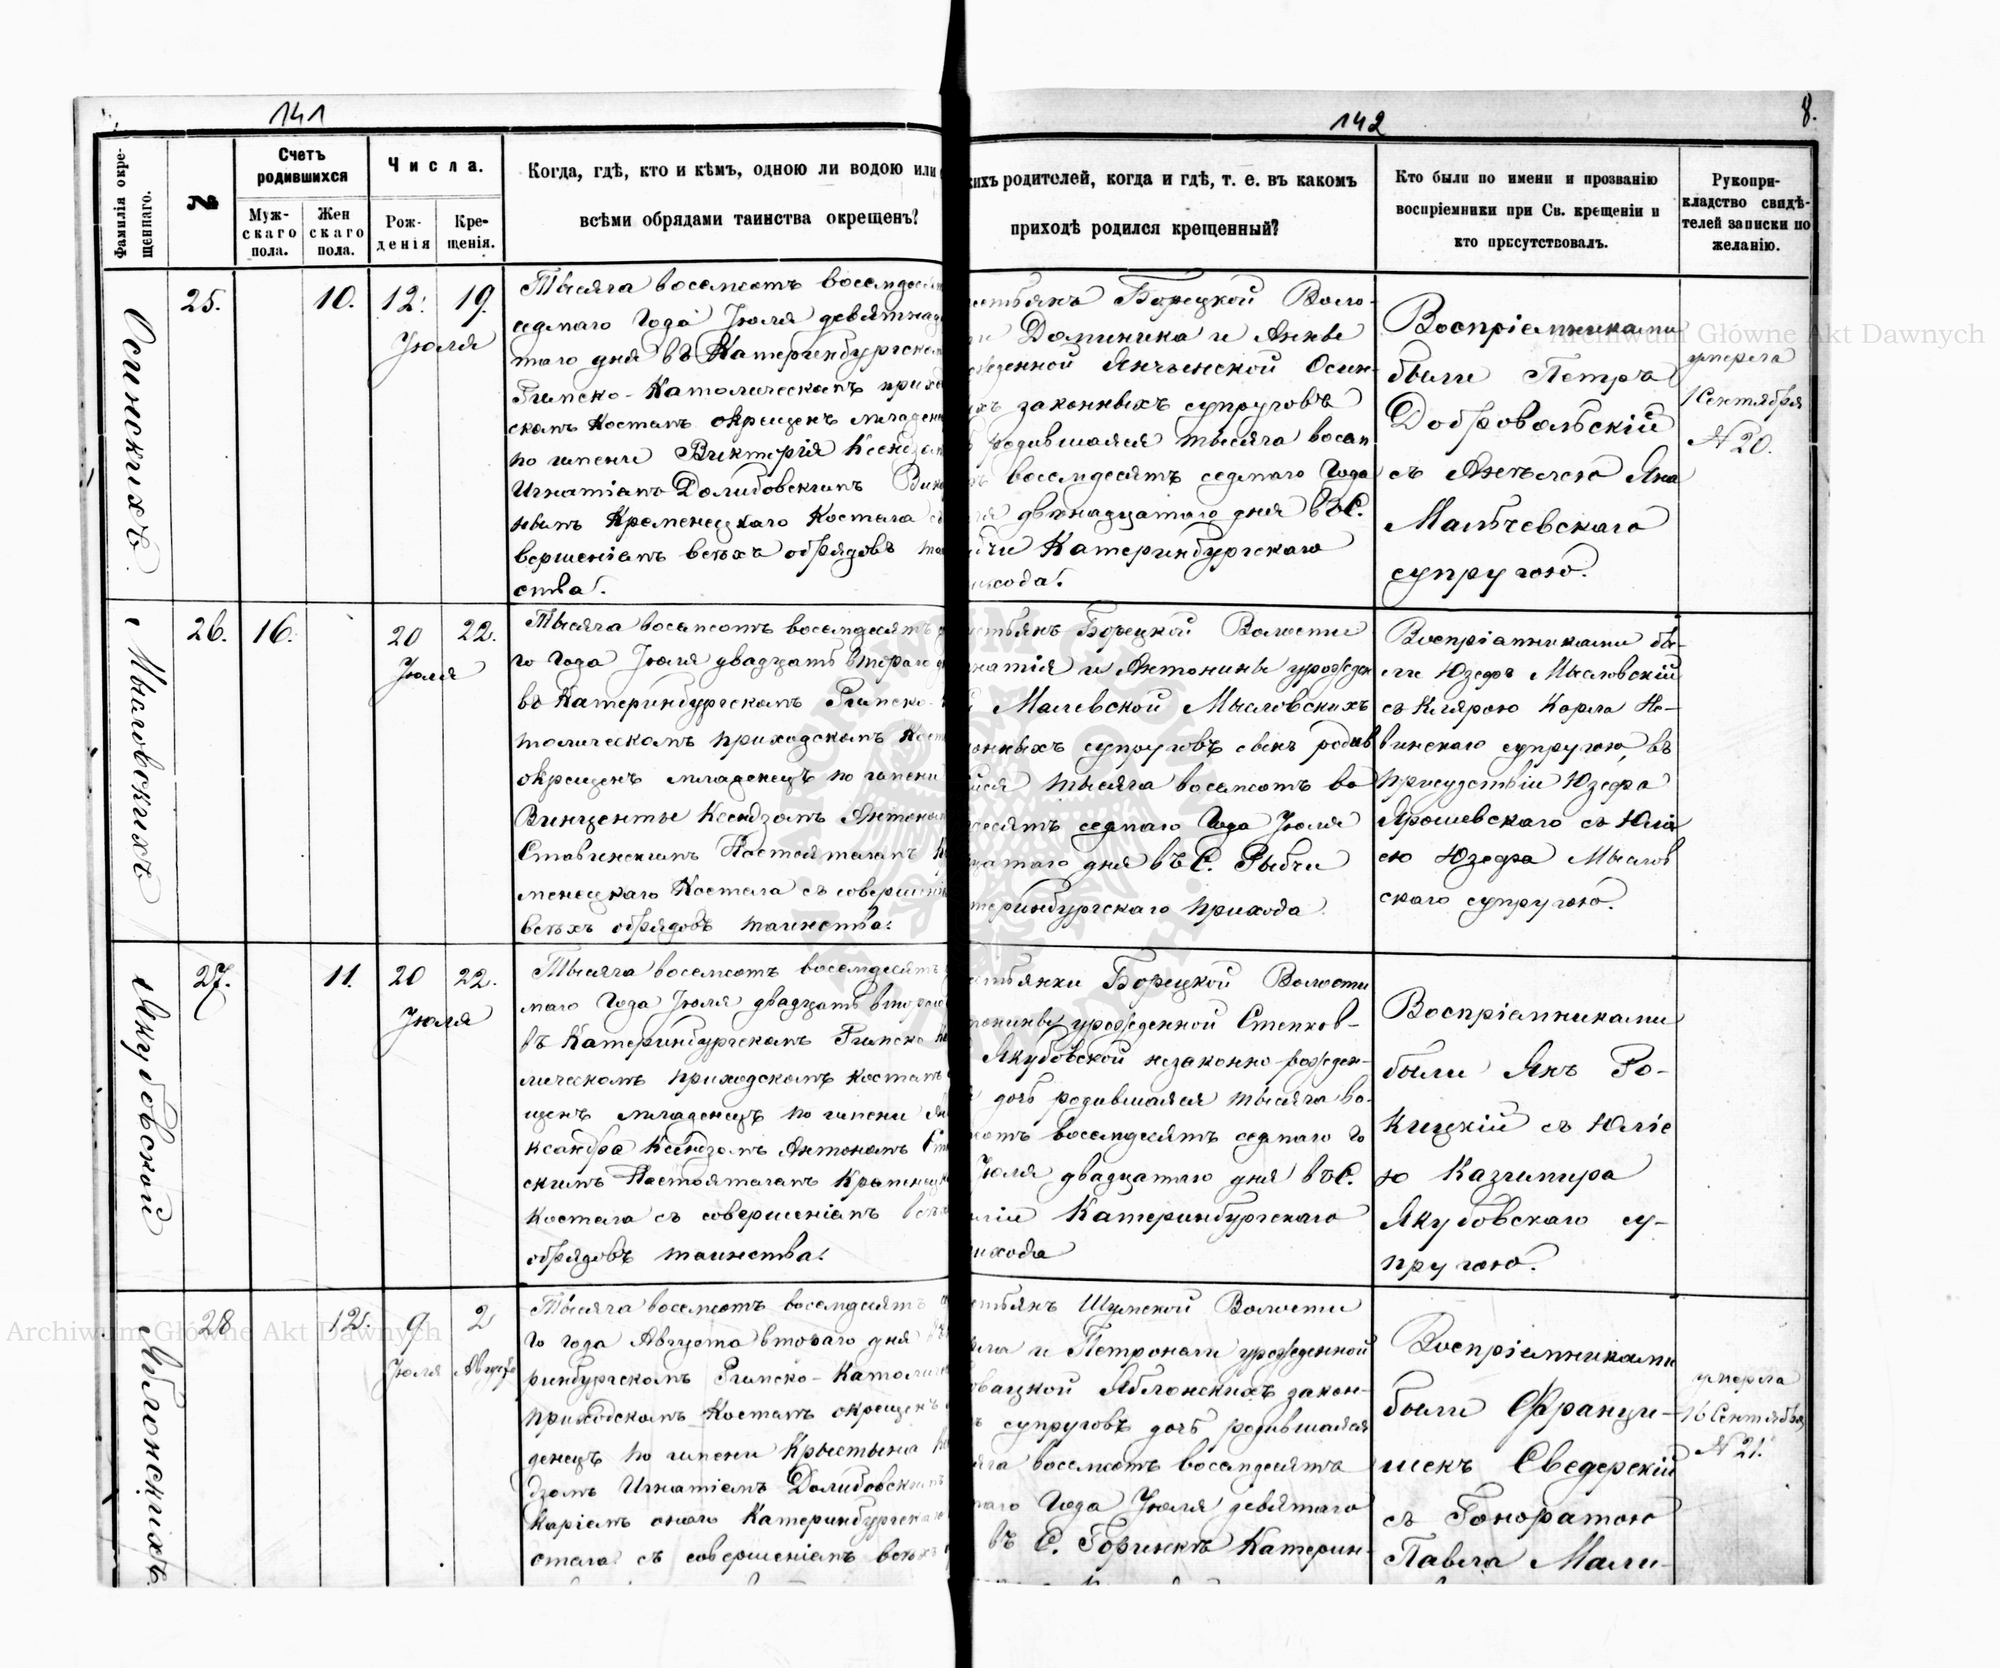 141
142
8.
Фамилія окре-
щеннаго.
№
Счетъ
родившихся
Муж-
скаго
пола.
Жен
скаго
пола.
Числа.
Рож-
денія
Кре-
щенія.
Когда, гдѣ, кто и кѣмъ, одною ли водою или
всѣми обрядами таинства окрещенъ?
родителей, когда и гдѣ, т. е. въ какомъ
приходѣ родился крещенный?
Кто были по имени и прозванію
воспріемники при Св. крещеніи и
кто присутствовалъ.
Рукопри-
кладство свидѣ-
телей записки по
желанію.
Осинскихъ
25.
10.
12.
19.
Іюля
Тысяча восемсотъ восемдесятъ
седмаго Года Іюля девятнад
таго дня въ Катеринбургскомъ
Римско-Католическомъ приход
скомъ Костелѣ окрещенъ младенецъ
по имени Викторія Ксендзомъ
Игнатіемъ Долибовскимъ Вика
нымъ Кременецкаго Костела съ
вершеніемъ всѣхъ обрядовъ таин
ства.
стьянъ Борецкой Воло-
Доминика и Анны
жденной Янчинской Осин-
законныхъ супруговъ
родившаяся тысяча восем
восемдесятъ седмаго Года
двѣнадцатаго дня въ С.
Катеринбургскаго
хода.
Воспріемниками
были Петръ
Добровольскій
съ Анелею Яна
Мальчевскаго
супругою.
умерла
1 Сентября
№ 20.
Мысловскихъ
26.
16.
20
22.
Іюля
Тысяча восемсотъ восемдесятъ
го Года Іюля двадцать втораго
въ Катеринбургскомъ Римско
толическомъ приходскомъ Кост
окрещенъ младенецъ по имени
Винценты Ксендзомъ Антоном
Ставинскимъ Настоятелемъ Кре
менецкаго Костела съ совершені
всѣхъ обрядовъ таинства.
стьянъ Борецкой Волости
натія и Антонины урожден
Малевской Мысловскихъ
онныхъ супруговъ сынъ родив
тысяча восемсотъ во
десятъ седмаго Года Іюля
цатаго дня въ С. Рыбчи
теринбургскаго прихода.
Воспріемниками бы-
ли Юзефъ Мысловскій
съ Клярою Карла Не-
винскаго супругою, въ
присудствіи Юзефа
Ярошевскаго съ Юлі
ею Юзефа Мыслов
скаго супругою.
Якубовской
27.
11.
20
22.
Іюля
Тысяча восемсотъ восемдесятъ
маго Года Іюля двадцать втораго
въ Катеринбургскомъ Римско Ка
лическомъ приходскомъ костелѣ
щенъ младенецъ по имени Але
ксандра Ксендзомъ Антономъ Ста
скимъ Настоятелемъ Кременецк
Костела съ совершеніемъ всѣх
обрядовъ таинства.
стьянки Борецкой Волости
тонины урожденной Степков-
Якубовской незаконно рожден-
дочь родившаяся тысяча во-
сотъ восемдесятъ седмаго Го
Іюля двадцатаго дня въ С.
Катеринбургскаго
ихода
Воспріемниками
были Янъ Ро-
кицкій съ Юліе
ю Казимира
Якубовскаго су-
пругою.
Яблонскихъ
28
12.
9
2
Іюля
Августа
Тысяча восемсотъ восемдесятъ
го года Августа втораго дня
ринбургскомъ Римско-Католи
приходскомъ Костелѣ окрещенъ
денецъ по имени Крыстына Ксен
дзомъ Игнатіемъ Долибовскимъ
каріемъ онаго Катеринбургскаго
стела съ совершеніемъ всѣхъ
стьянъ Шумской Волости
и Петронели урожденной
Яблонскихъ закон-
супруговъ дочь родившаяся
яча восемсотъ восемдесятъ
маго Года Іюля девятаго
въ С. Горинкѣ Катерин-
Воспріемниками
были Франци-
шекъ Сведерскій
съ Гоноратою
Павла Мали-
умерла
16 Сентября
№ 21.
Archiwum Główne Akt Dawnych
Archiwum Główne Akt Dawnych